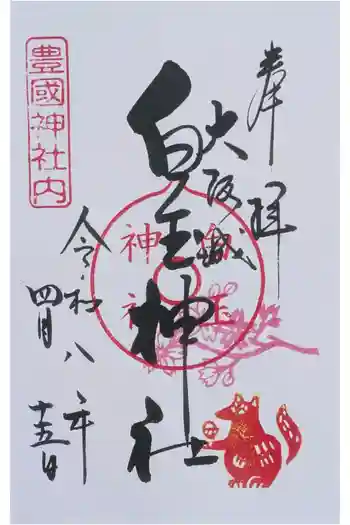 奉拝
大阪城
白玉神社
豊國神社内
令和八年
四月十五日